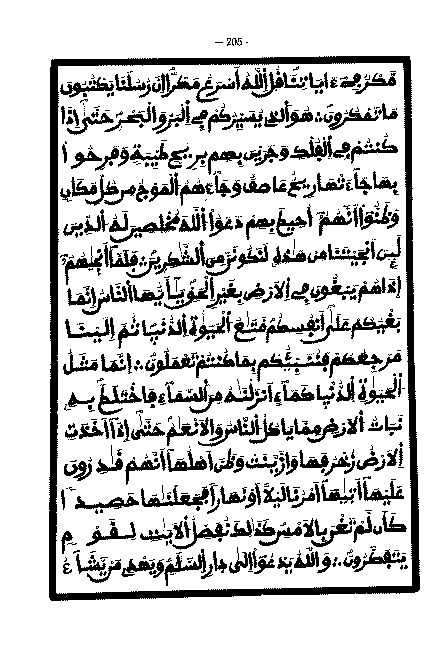 — 205 -
مَّكْرٌ فِےٓ ءَايَاتِنَا قُلِ اِ۬للَّهُ أَسْرَعُ مَكْراً اِنَّ رُسُلَنَا يَكْتُبُونَ
مَا تَمْكُرُونَ ∴ هُوَ اَ۬لذِے يُسَيِّرُكُمْ فِے اِ۬لْبَرِّ وَالْبَحْرِ حَتَّىٰٓ إِذَا
كُنتُمْ فِے اِ۬لْفُلْكِ وَجَرَيْنَ بِهِم بِرِيحٖ طَيِّبَةٖ وَفَرِحُوا
بِهَا جَآءَتْهَا رِيحٌ عَاصِفٌ وَجَآءَهُمُ اُ۬لْمَوْجُ مِن كُلِّ مَكَانٖ
وَظَنُّوٓا أَنَّهُمُۥٓ أُحِيطَ بِهِمْ دَعَوُا اُ۬للَّهَ مُخْلِصِينَ لَهُ اُ۬لدِّينَ
لَئِنَ اَنجَيْتَنَا مِنْ هَٰذِهِۦ لَنَكُونَنَّ مِنَ اَ۬لشَّٰكِرِينَ ∴ فَلَمَّآ أَنج۪يٰهُمُۥٓ
إِذَا هُمْ يَبْغُونَ فِے اِ۬لَارْضِ بِغَيْرِ اِ۬لْحَقِّ يَٰٓأَيُّهَا اَ۬لنَّاسُ إِنَّمَا
بَغْيُكُمْ عَلَىٰٓ أَنفُسِكُم مَّتَٰعُ اُ۬لْحَيَوٰةِ اِ۬لدُّنْي۪ا ثُمَّ إِلَيْنَا
مَرْجِعُكُمْ فَنُنَبِّئُكُم بِمَا كُنتُمْ تَعْمَلُونَ ∴ إِنَّمَا مَثَلُ
اُ۬لْحَيَوٰةِ اِ۬لدُّنْي۪ا كَمَآءٍ اَنزَلْنَٰهُ مِنَ اَ۬لسَّمَآءِ فَاخْتَلَطَ بِهِۦ
نَبَاتُ اُ۬لَارْضِ مِمَّا يَاكُلُ اُ۬لنَّاسُ وَالَانْعَٰمُ حَتَّىٰٓ إِذَآ أَخَذَتِ
اِ۬لَارْضُ زُخْرُفَهَا وَازَّيَّنَتْ وَظَنَّ أَهْلُهَآ أَنَّهُمْ قَٰدِرُونَ
عَلَيْهَآ أَت۪يٰهَآ أَمْرُنَا لَيْلاً اَوْ نَهَاراً فَجَعَلْنَٰهَا حَصِيداً
كَأَن لَّمْ تَغْنَ بِالَامْسِ كَذَٰلِكَ نُفَصِّلُ اُ۬لَايَٰتِ لِقَوْمٖ
يَتَفَكَّرُونَ ∴ وَاللَّهُ يَدْعُوٓا إِلَىٰ د۪ارِ اِ۬لسَّلَٰمِ وَيَهْدِے مَنْ يَّشَآءُ